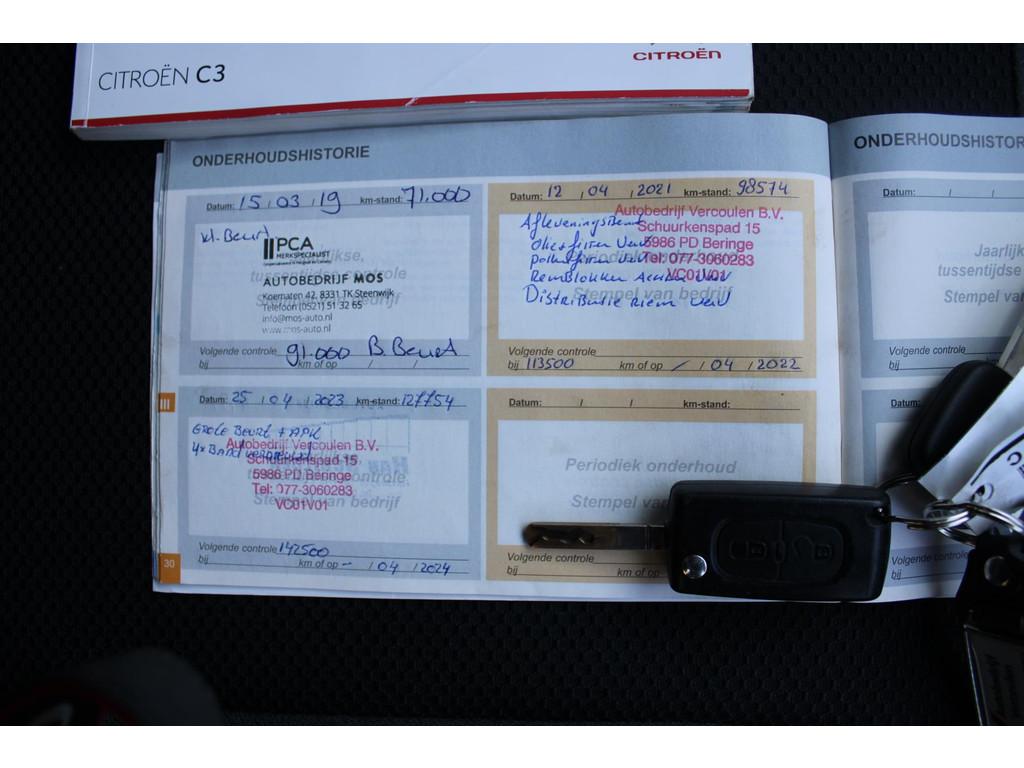 CITROËN C3
CITROËN
ONDERHOUDSHISTORIE
Datum: 15 / 03 / 19 km-stand: 71.000
kl. Beurt
PCA
MERKSPECIALIST
AUTOBEDRIJF MOS
Koematen 42, 8331 TK Steenwijk
Telefoon (0521) 51 32 65
info@mos-auto.nl
www.mos-auto.nl
tussentijdse controle
Volgende controle
bij 91.000 km of op / / B. Beurt
Datum: 12 / 04 / 2021 km-stand: 98574
Autobedrijf Vercoulen B.V.
Schuurkenspad 15
5986 PD Beringe
Tel: 077-3060283
VC01V01
Afleveringsbeurt
Olie + filter Verv
pollenfilter Verv
Remblokken Achter Verv
Distributie riem Verv
Stempel van bedrijf
Volgende controle
bij 113500 km of op - / 04 / 2022
III
Datum: 25 / 04 / 2023 km-stand: 127754
Grote Beurt + APK
4x Band
Autobedrijf Vercoulen B.V.
Schuurkenspad 15
5986 PD Beringe
Tel: 077-3060283
VC01V01
Stempel van bedrijf
Volgende controle 142500
bij km of op - / 04 / 2024
30
Datum: / / km-stand:
Periodiek onderhoud
Stempel van
Volgende controle
bij km of op
ONDERHOUDSHISTOR
Datum: / /
Jaarlijk
tussentijdse
Stempel van
Volgende controle
bij
Datum:
Volgende
bij